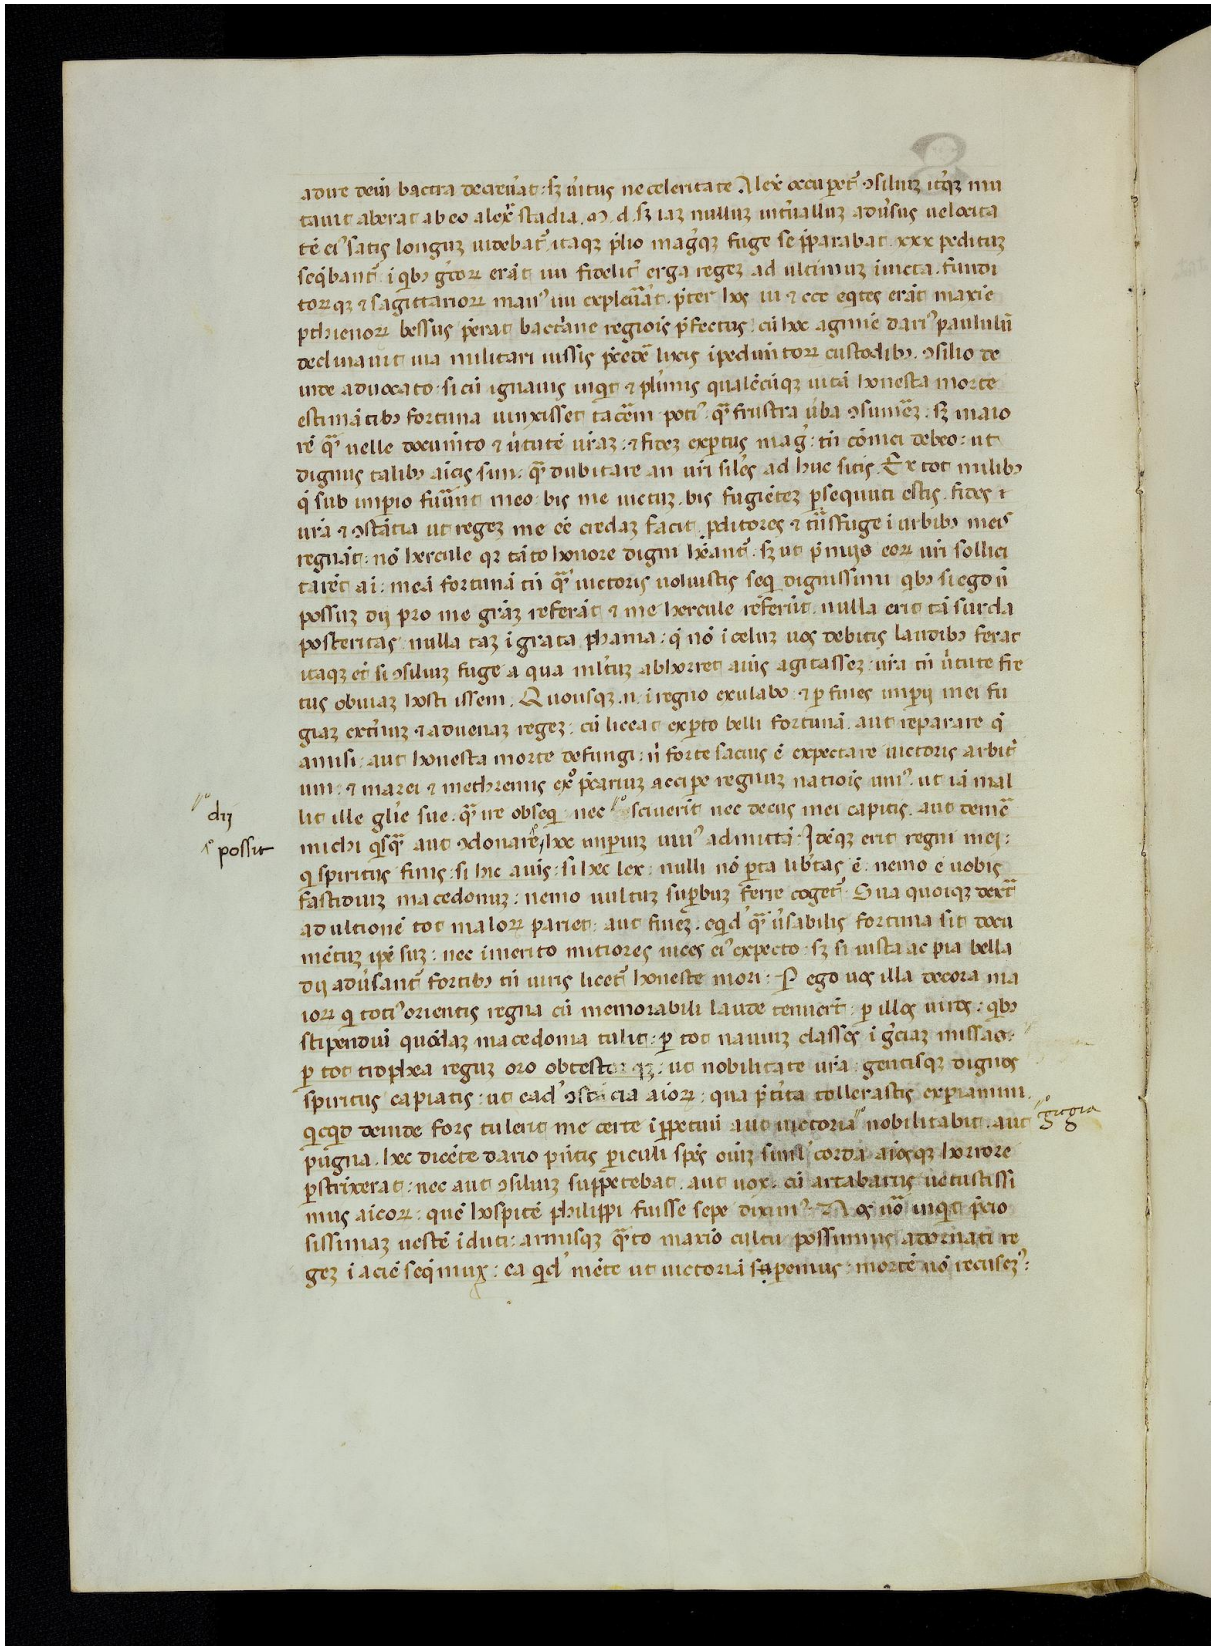 adire deīn bactra decreūat: sꝫ ūitus ne celeritate Alex̄ occupet᷑ ꝯsiliuꝫ it̓qꝫ mu
tauit aberat ab eo alex̄ stadia .M. d. sꝫ iaꝫ nulluꝫ int̓ualluꝫ adūsus uelocita
tē ei᾿ satis longuꝫ uidebat᷑ itaqꝫ p̄lio mag̓qꝫ fuge se p̄parabat. xxx peditum
seq̄bant᷑ i qbꝰ g̓corꝝ erāt iiii fidelit᷑ erga regeꝫ ad ultimuꝫ inuicta. fundi
torꝝqꝫ ⁊ sagittariorꝝ manꝰ iiii expleūat. p̄ter hos iii ⁊ ccc eqtes erāt maxīe
pthienorꝝ bessus p̄erat bactriane regiōis p̄fectus. cū hoc agmīe dariꝰ paululū
declinauit uia militari iussis p̄cedē lixis ipedimtorꝝ custodibꝰ. ꝯsilio de
inde aduocato. si cū ignauis inqt ⁊ plurimis qualēcūqꝫ uitā honesta morte
estimātibꝰ fortuna uinxisset tacerem potiꝰ qᷓ frustra ūba ꝯsumeꝫ. sꝫ maio
rē qᷓ uelle documto ⁊ ūtutē urāꝫ. ⁊ fideꝫ exptus mag̓: tū cōniti debeo: ut
dignus talibꝰ aīcis sim: qᷓ dubitare an uri siles ad huc sitis. Ex tot milibꝰ
q̓ sub impio fuer̄nt meo. bis me uictuꝫ. bis fugiēteꝫ psequuti estis. fides ⁊
urā ⁊ ꝯstātia ut regeꝫ me eē credaꝫ facit. pditores ⁊ trāsfuge i urbibꝰ meis
regnāt: nō hercule qꝛ tāto honore digni heāant᷑. sꝫ ut p̄mijs eorꝝ uri sollici
tarēt ai: meā fortunā tū qᷓ uictoris uoluistis seq dignissimi qbꝰ si ego n̄
possuꝫ dij pro me grāꝫ referāt ⁊ me hercule referūt. nulla erit tā surda
posteritas. nulla taꝫ igrata phama: q̄ nō i celuꝫ uos debitis laudibꝰ ferat
itaqꝫ et si ꝯsiliuꝫ fuge a qua mltuꝫ abhorret aīus agitasseꝫ. urā tū ūtute fre
tus obuiaꝫ hosti issem. Quousqꝫ .n. i regno exulabo. ⁊ p fines impij mei fu
giaꝫ ext̓nuꝫ ⁊ aduenaꝫ regeꝫ: cū liceat expto belli fortunā. aut reparare q̄
amisi: aut honesta morte defungi: n̄ forte sacius ē expectare uictoris arbit̓
um: ⁊ maᴣei ⁊ methrenis exº p̄cariuꝫ accipe regnuꝫ natiōis uniꝰ. ut iā mal
lit ille glīe sue. qᷓ ire obseq. nec sciuerit nec decus mei capitis. aut demē
michi qsqᷓ aut ꝯdonare. hoc impiuꝫ uiuꝰ admittā: Ideqꝫ erit regni mei:
q spiritus finis: si hic aīus: si hec lex: nulli nō pta lib̓tas ē: nemo e uobis
fastidiuꝫ macedonuꝫ: nemo uultuꝫ supbuꝫ ferre coget᷑. Sua quoiqꝫ dextᷓ
ad ultionē tot malorꝝ pariet: aut fineꝫ. eqd̓ qᷓ ūsabilis fortuna sit docu
mētuꝫ ipē suꝫ: nec imerito mitiores uices eiꝰ expecto: sꝫ si iusta ac pia bella
dij adūsant᷑ fortibꝰ tū uiris licet᷑ honeste mori: P ego uos illa decora ma
iorꝝ q totiꝰ orientis regna cū memorabili laude tenuert̄: p illos uiros: qbꝰ
stipendiū quōdaꝫ macedonia tulit: p tot nauiuꝫ classes i g̓ciaꝫ missas.
p tot trophea regum oro obtestorqꝫ: ut nobilitate urā: gentisqꝫ dignos
spiritus capiatis: ut eād̓ ꝯstācia aiorꝝ: qua p̄t̓ita tollerastis expiamini.
qcqd deinde fors tulerit me certe i ppetuū aut uictoriā nobilitabit. aut
pugna. hec dicēte dario p̄ntis piculi spēs oīuꝫ simul corda aīosqꝫ horrore
pstrixerat: nec aut ꝯsiliuꝫ suppetebat. aut uox. cū artabatus uetustissi
mus aīcorꝝ: quē hospitē philippi fuisse sepe diximꝰ. Nos uō inqt p̄cio
sissimaꝫ uestē iduti: armisqꝫ qᷓto maxīo cultu possumus adornati re
geꝫ i aciē seqmur: ea qd̓ mēte ut uictoriā speremus: mortē nō recuseꝫꝰ:
diꝫ
possit